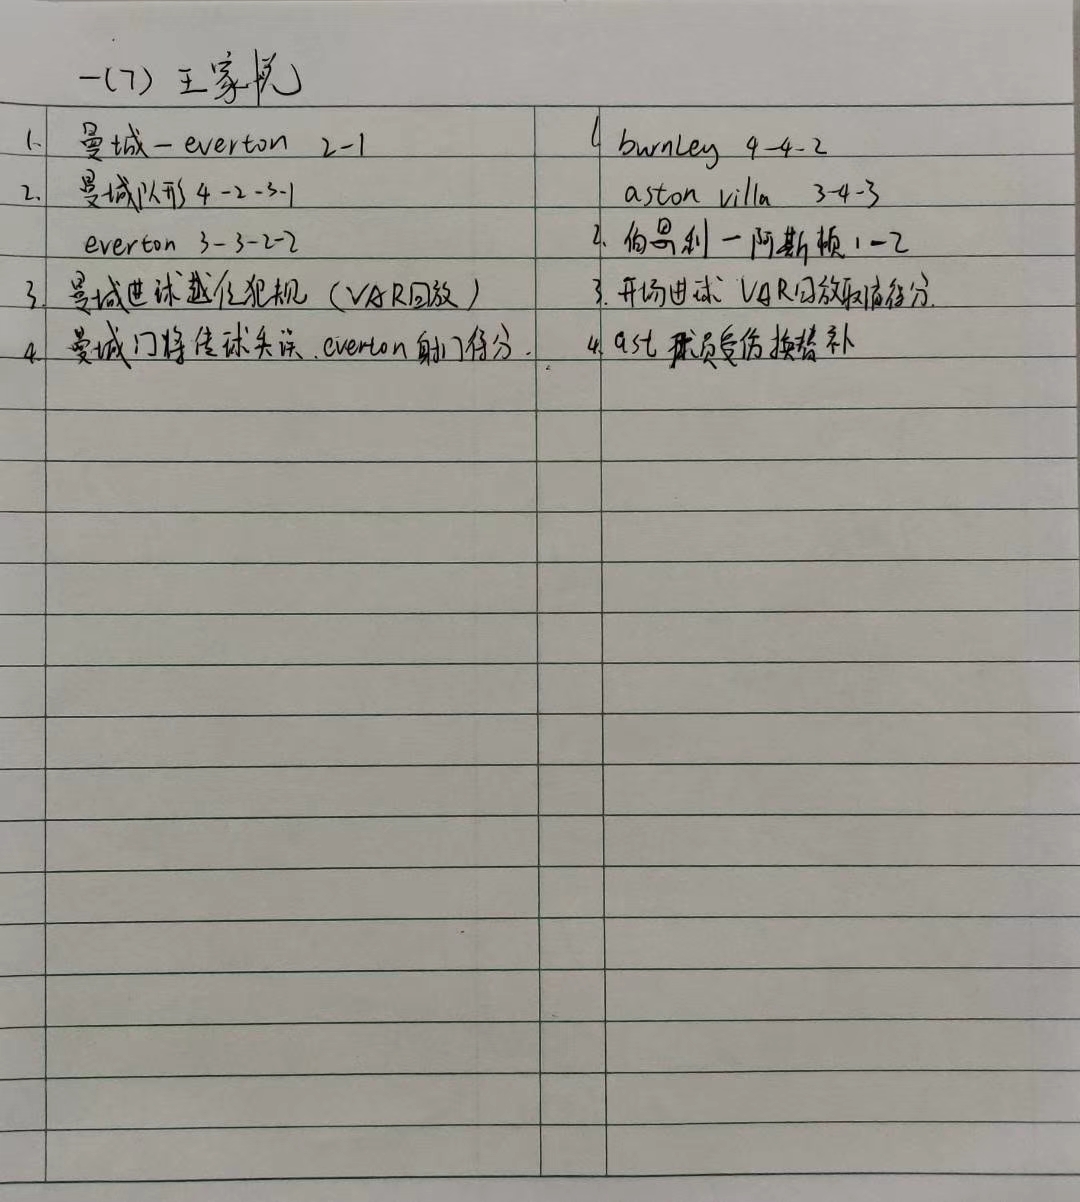 一(7) 王家悦
1. 曼城-everton 2-1
2. 曼城队形 4-2-3-1
everton 3-3-2-2
3. 曼城进球越位犯规 (VAR回放)
4. 曼城门将传球失误.everton射门得分.
1 burnley 4-4-2
aston villa 3-4-3
2. 伯恩利-阿斯顿 1-2
3. 开场进球 VAR回放取消得分.
4. ast 球员受伤换替补